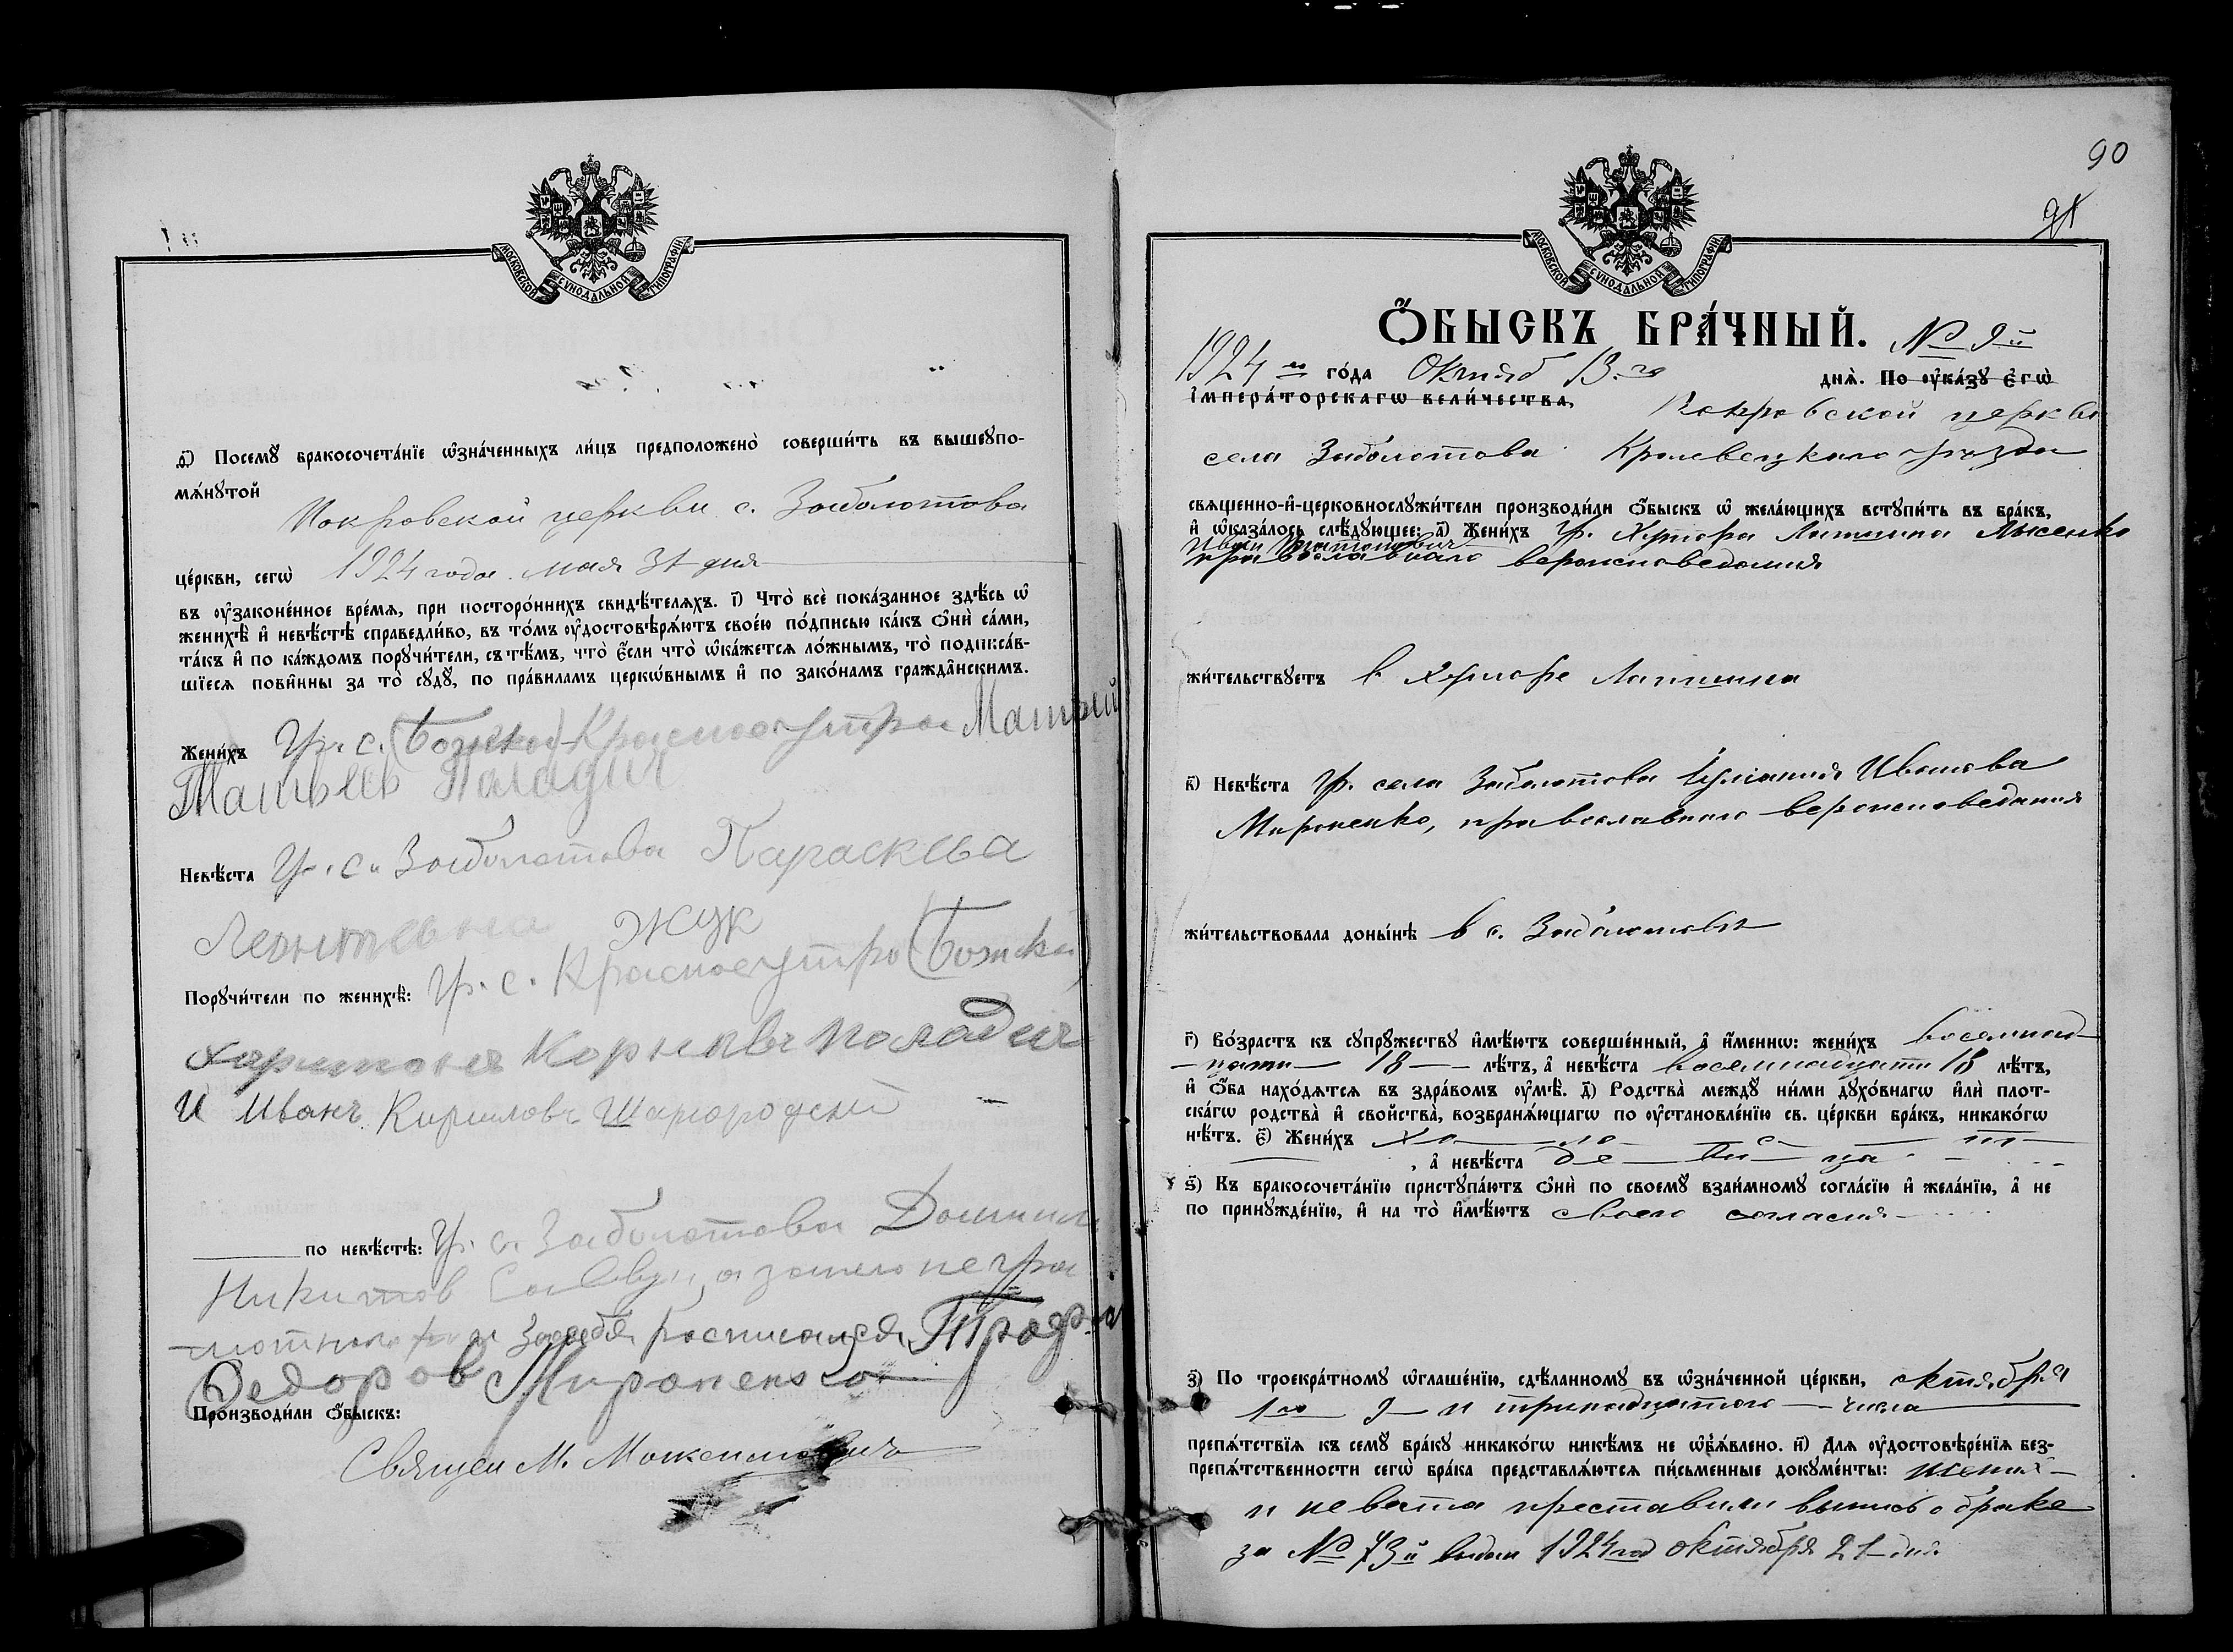 МОСКОВСКОЙ СѴНОДАЛЬНОЙ ТИПОГРАФІИ
ѳ҃) Посемꙋ̀ бракосочета́нїе ѡ҆зна́ченныхъ ли́цъ предположено̀ соверши́ть въ вышеꙋпо-
мѧ́нꙋтой
Покровской церкви с. Заболотова
це́ркви, сегѡ̀ 1924 года. мая 31 дня
въ ᲂу҆законе́нное вре́мѧ, при посторо́ннихъ свидѣ́телѧхъ. і҃) Что̀ всѐ пока́занное здѣ́сь ѡ҆
женихѣ̀ и҆ невѣ́стѣ справедли́во, въ то́мъ ᲂу҆достовѣрѧ́ютъ свое́ю по́дписью ка́къ ѻ҆нѝ са́ми,
та́къ и҆ по ка́ждомъ порꙋчи́тели, съ тѣ́мъ, что̀ є҆́сли что̀ ѡ҆ка́жетсѧ ло́жнымъ, то̀ подписа́в-
шїесѧ пови́нны за то̀ сꙋдꙋ̀, по пра́виламъ церкѡ́внымъ и҆ по зако́намъ гражда̂нскимъ.
Жени́хъ Гр. с. (Божка) Красноеутро Матвий
Матвеев Паладич
Невѣ́ста Гр. с. Заболотова Параскева
Леонтевна Жук
Порꙋчи́тели по женихѣ̀: Гр. с. Красноеутро (Божка)
Харитонъ Корнѣвъ Паладич
И Иванъ Кирилов Шаргородский
по невѣ́стѣ: Гр. с. Заболотова Даниил
Никитов, а за него негра
мотного и за себя росписался Трофим
Федоров Мироненко
Производи́ли ѻ҆́быскъ:
Священ М. Максимович
90
91
МОСКОВСКОЙ СѴНОДАЛЬНОЙ ТИПОГРАФІИ
Ѻ҆́БЫСКЪ БРА́ЧНЫЙ. № 9й
1924 го го́да Октяб 13. го днѧ̀. По ᲂу҆ка́зꙋ є҆гѡ̀
і҆мпера́торскагѡ вели́чества, Покровской церкви
села Заболотова Кролевецкаго уезда
свѧще́нно-и҆-церковнослꙋжи́тели производи́ли ѻ҆́быскъ ѡ҆ жела́ющихъ встꙋпи́ть въ бра́къ,
и҆ ѡ҆каза́лось слѣ́дꙋющее: а҃) Жени́хъ Гр. Хутора Лапшина Лысенко
Иван
православного вероисповедания
жи́тельствꙋетъ в хуторе Лапшина
в҃) Невѣ́ста Гр. села Заболотова Иулиания Иванова
Мироненко, православного вероисповедания
жи́тельствовала доны́нѣ в с. Заболотове
г҃) Во́зрастъ къ сꙋпрꙋ́жествꙋ и҆мѣ́ютъ соверше́нный, а҆ и҆́меннѡ: жени́хъ восемнад-
цати 18 лѣ́тъ, а҆ невѣ́ста восемнадцати 18 лѣ́тъ,
и҆ ѻ҆́ба нахо́дѧтсѧ въ здра́вомъ ᲂу҆мѣ̀. д҃) Родства̀ междꙋ̀ ни́ми дꙋхо́внагѡ и҆лѝ плот-
ска́гѡ родства̀ и҆ свойства̀, возбранѧ́ющагѡ по ᲂу҆становле́нїю св. це́ркви бра́къ, никако́гѡ
нѣ́тъ. є҃) Жени́хъ хо ло с т
, а҆ невѣ́ста де ви ца
ѕ҃) Къ бракосочета́нїю пристꙋпа́ютъ ѻ҆нѝ по своемꙋ̀ взаи́мномꙋ согла́сїю и҆ жела́нїю, а҆ не
по принꙋжде́нїю, и҆ на то̀ и҆мѣ́ютъ своего согласия
з҃) По троекра́тномꙋ ѡ҆глаше́нїю, сдѣ́ланномꙋ въ ѡ҆зна́ченной це́ркви, октября
1го 9 и тринадцатого числа
препѧ́тствїѧ къ семꙋ̀ бра́кꙋ никако́гѡ никѣ́мъ не ѡ҆б̾ѧ́влено. и҃) Длѧ ᲂу҆достовѣре́нїѧ без-
препѧ́тственности сегѡ̀ бра́ка представлѧ́ютсѧ пи́сьменные докꙋме́нты: жених
и невеста преставили выпись о браке
за № 73й выдан 1924 год октября 21 дня